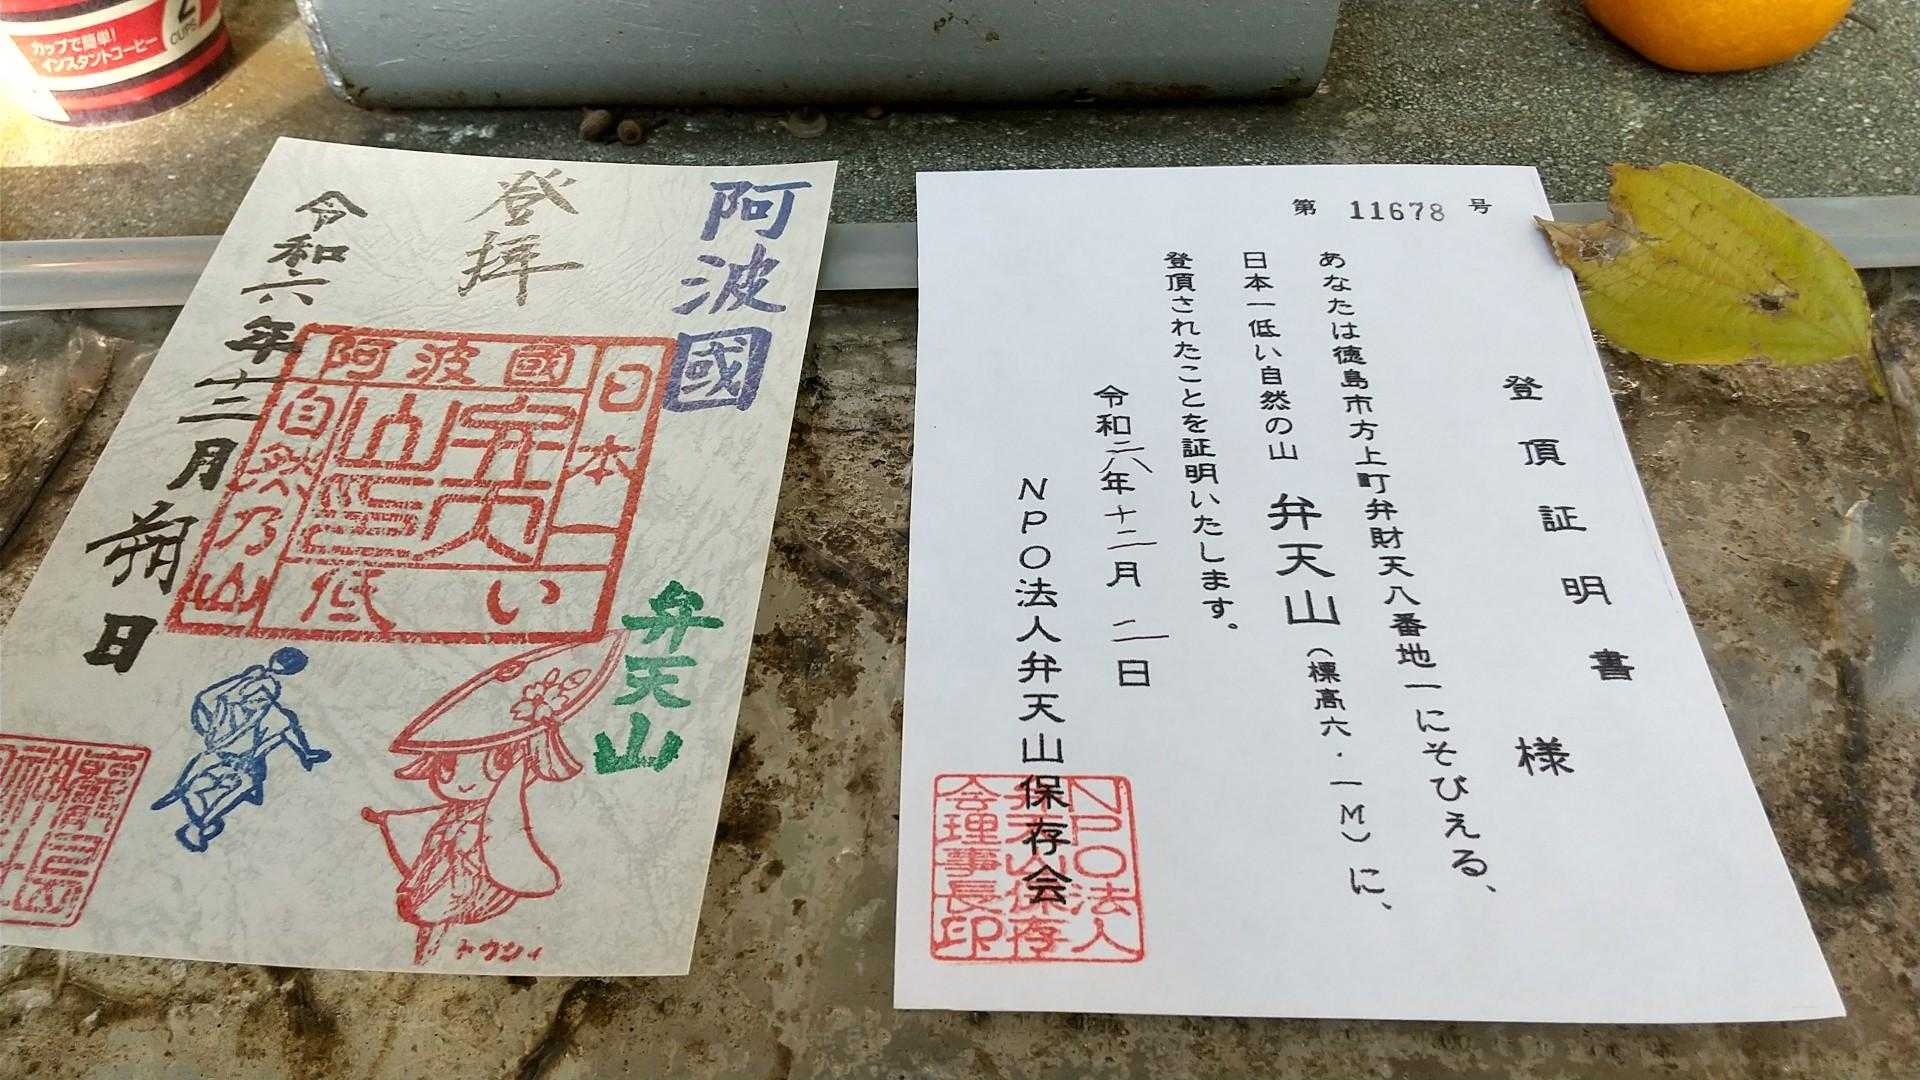 カップで簡単!
インスタントコーヒー
2
CUPS
阿波國
登拝
令和六年十二月朔日
日本一
阿波國
弁天
山
低い
自然乃山
弁天山
トクシィ
第 11678 号
登頂証明書
様
あなたは徳島市方上町弁財天八番地一にそびえる、
日本一低い自然の山 弁天山(標高六・一M)に、
登頂されたことを証明いたします。
令和六年十二月 一日
NPO法人弁天山保存会
NPO法人
弁天山保存
会理事長印